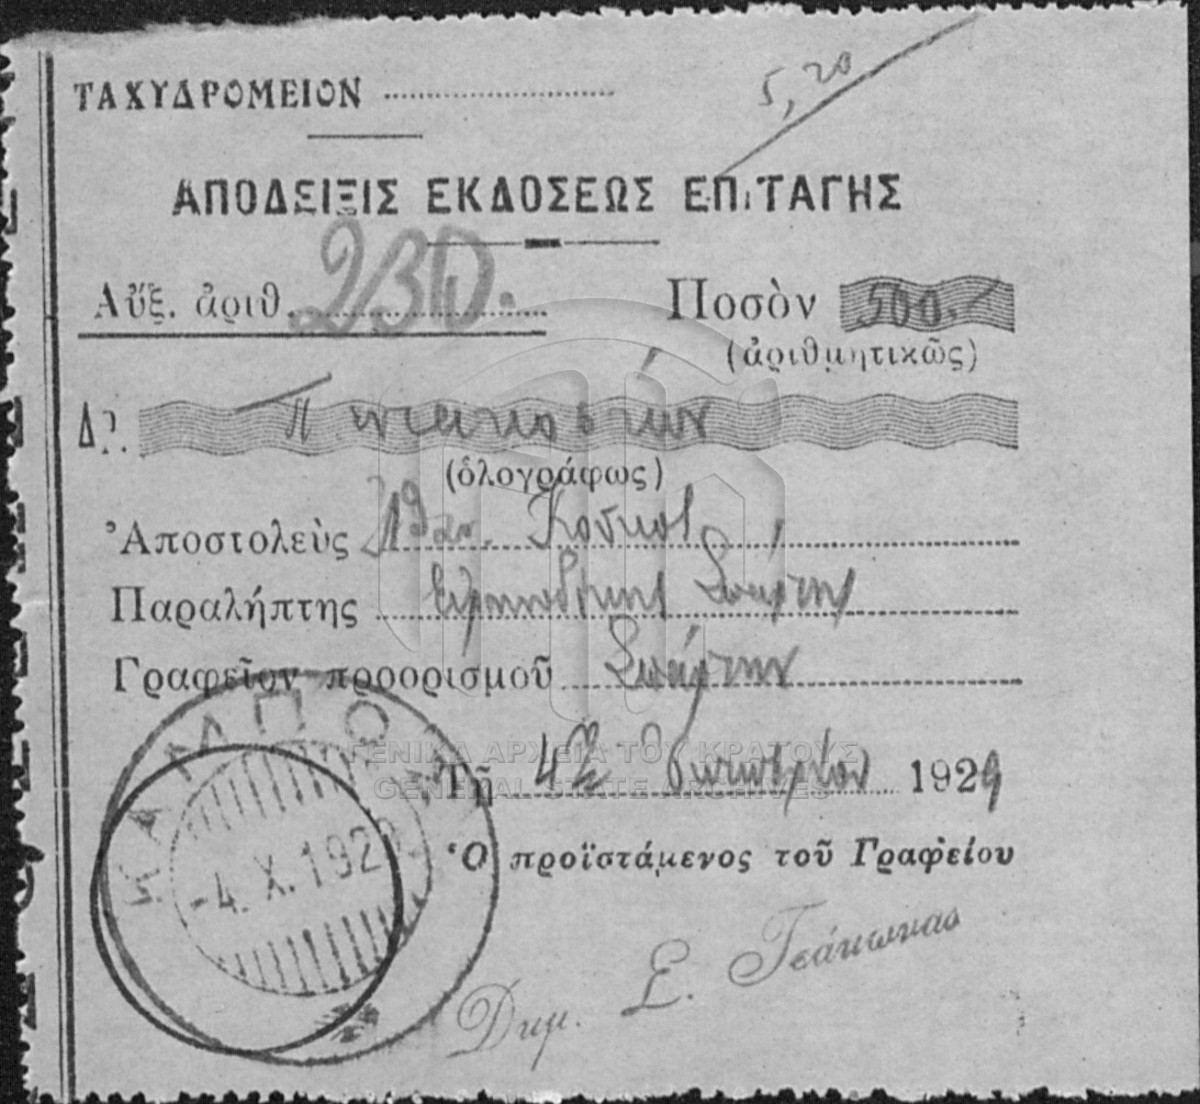 ΤΑΧΥΔΡΟΜΕΙΟΝ
5,20
ΑΠΟΔΕΙΞΙΣ ΕΚΔΟΣΕΩΣ ΕΠΙΤΑΓΗΣ
Αὔξ. ἀριθ. 230.
Ποσὸν 500.
(ἀριθμητικῶς)
Δρ. Πεντακοσίων
(ὁλογράφως)
Ἀποστολεὺς Αθαν.
Παραλήπτης Σπάρτης
Γραφεῖον προορισμοῦ Σπάρτην
ΓΕΝΙΚΑ ΑΡΧΕΙΑ ΤΟΥ ΚΡΑΤΟΥΣ
GENERAL STATE ARCHIVES
Τῇ 4 Οκτωβρίου 1929
Ὁ προϊστάμενος τοῦ Γραφείου
Δημ. Ε. Τσάκωνας
ΚΑΜΠΟΣ
-4. Χ. 192